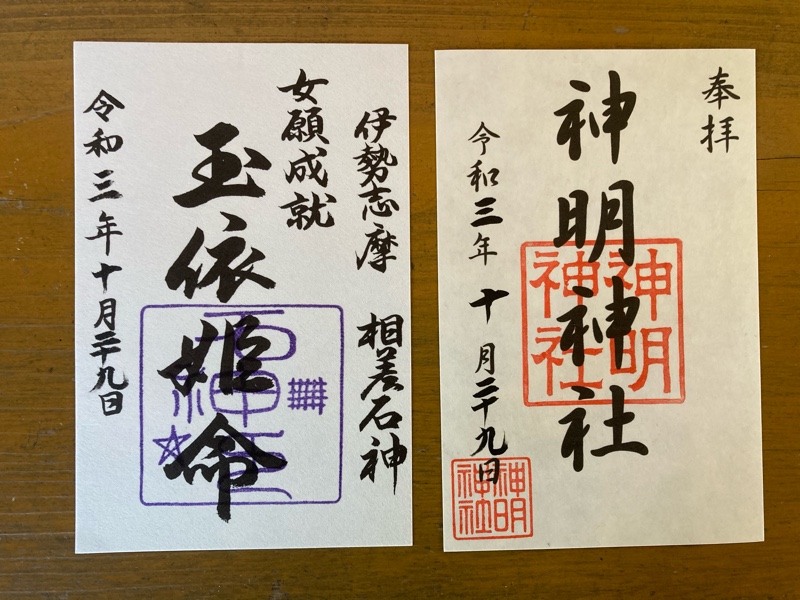 奉拝
神明神社
令和三年十月二十九日
神明
神社
神明
神社
伊勢志摩 相差石神
女願成就
玉依姫命
令和三年十月二十九日